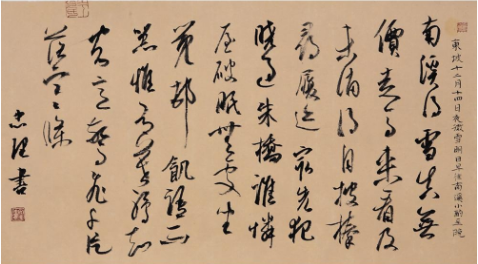 東坡十二月十四日夜微雪明日早往南溪小酌至晚
南溪得雪真無
價走馬來看及
未消獨自披榛
尋履迹最先犯
曉過朱橋誰憐
屋破眠無處坐
覺村飢語不
囂惟有暮鴉知
客意驚飛千片
落寒條
書